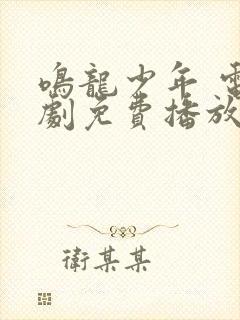 鳴龍少年 電
劇免費播放
衛某某